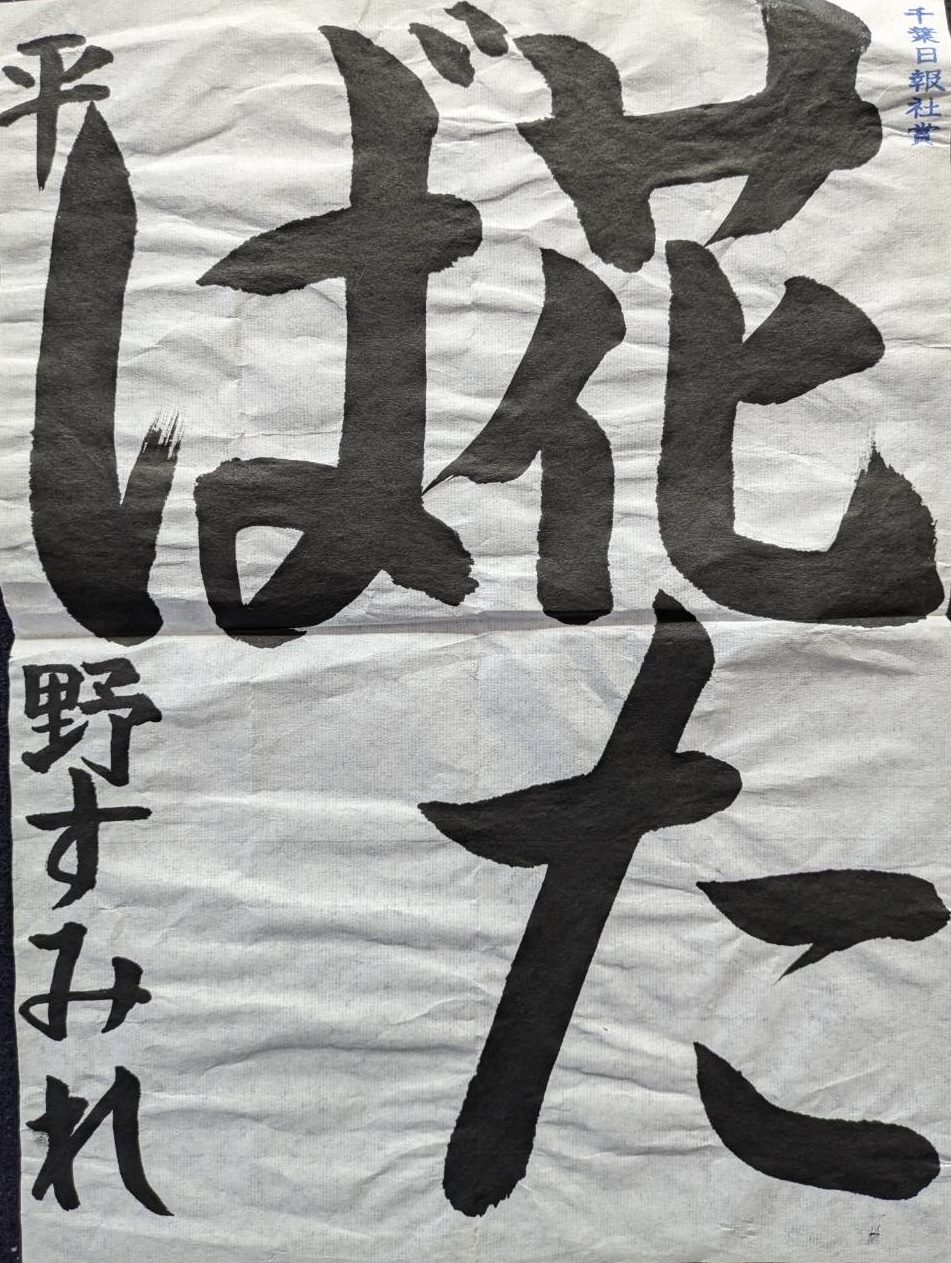 千葉日報社賞
花た
ば
平野すみれ